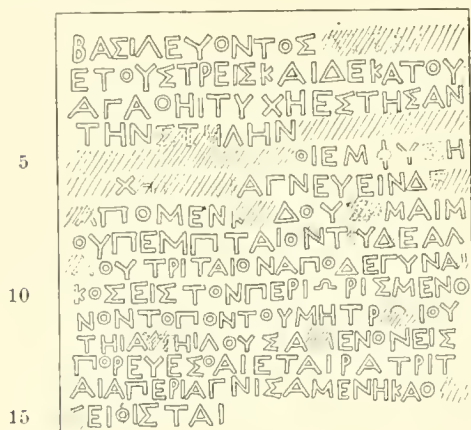 ΒΑΣΙΛΕΥΟΝΤΟΣ
ΕΤΟΥΣΤΡΕΙΣΚΑΙΔΕΚΑΤΟΥ
ΑΓΑΟΗΙΤΥ ΧΗΕΣΤΗΣΑΝ
ΤΗΝΣΤΗΛΗΝ
5 ΟΙΕΜΦΥ Η
Χ ΑΓΝΕΥΕΙΝΔ
ΠΟΜΕΝ ΔΟΥ ΜΑΙΜ
ΟΥΠΕΜΠΤΑΙΟΝΤΥΔΕΑΛ
ΟΥΤΡΙΤΑΙΟΝΑΠΟΔΕΓΥΝΑ
10 ΚΟΣΕΙΣΤΟΝΠΕΡΙΩΡΙΣΜΕΝΟ
ΝΟΝΤΟΠΟΝΤΟΥΜΗΤΡΩΙΟΥ
ΤΗΙΑ ΗΙΛΟΥΣΑΜΕΝΟΝΕΙΣ
ΠΟΡΕΥΕΣΟΑΙΕΤΑΙΡΑΤΡΙΤ
ΑΙΑΠΕΡΙΑΓΝΙΣΑΜΕΝΗΚΑΟ
15 ΕΙΘΙΣΤΑΙ